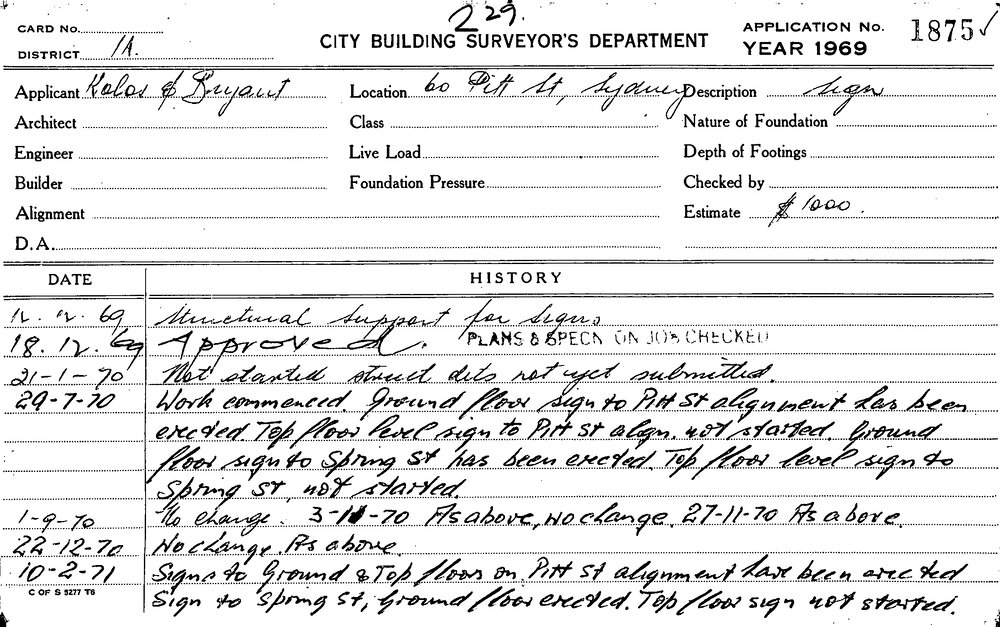 229.
CARD No.
DISTRICT 1A.
CITY BUILDING SURVEYOR'S DEPARTMENT
APPLICATION No. 1875 ✓
YEAR 1969
Applicant Kolos & Bryant Location 60 Pitt St, Sydney Description Sign
Architect Class Nature of Foundation
Engineer Live Load Depth of Footings
Builder Foundation Pressure Checked by
Alignment Estimate $1000.
D.A.
DATE HISTORY
12.12.69 Structural support for signs
18.12.69 Approved. PLANS & SPECN ON JOB CHECKED
21-1-70 Not started struct dets not yet submitted.
29-7-70 Work commenced. Ground floor sign to Pitt St alignment has been
erected. Top floor level sign to Pitt St align. not started. Ground
floor sign to Spring St has been erected. Top floor level sign to
Spring St, not started.
1-9-70 No change. 3-11-70 As above, no change. 27-11-70 As above.
22-12-70 No change. As above.
10-2-71 Signs to Ground & Top floors on Pitt St alignment have been erected
C OF S 5277 T6
Sign to Spring St, Ground floor erected. Top floor sign not started.